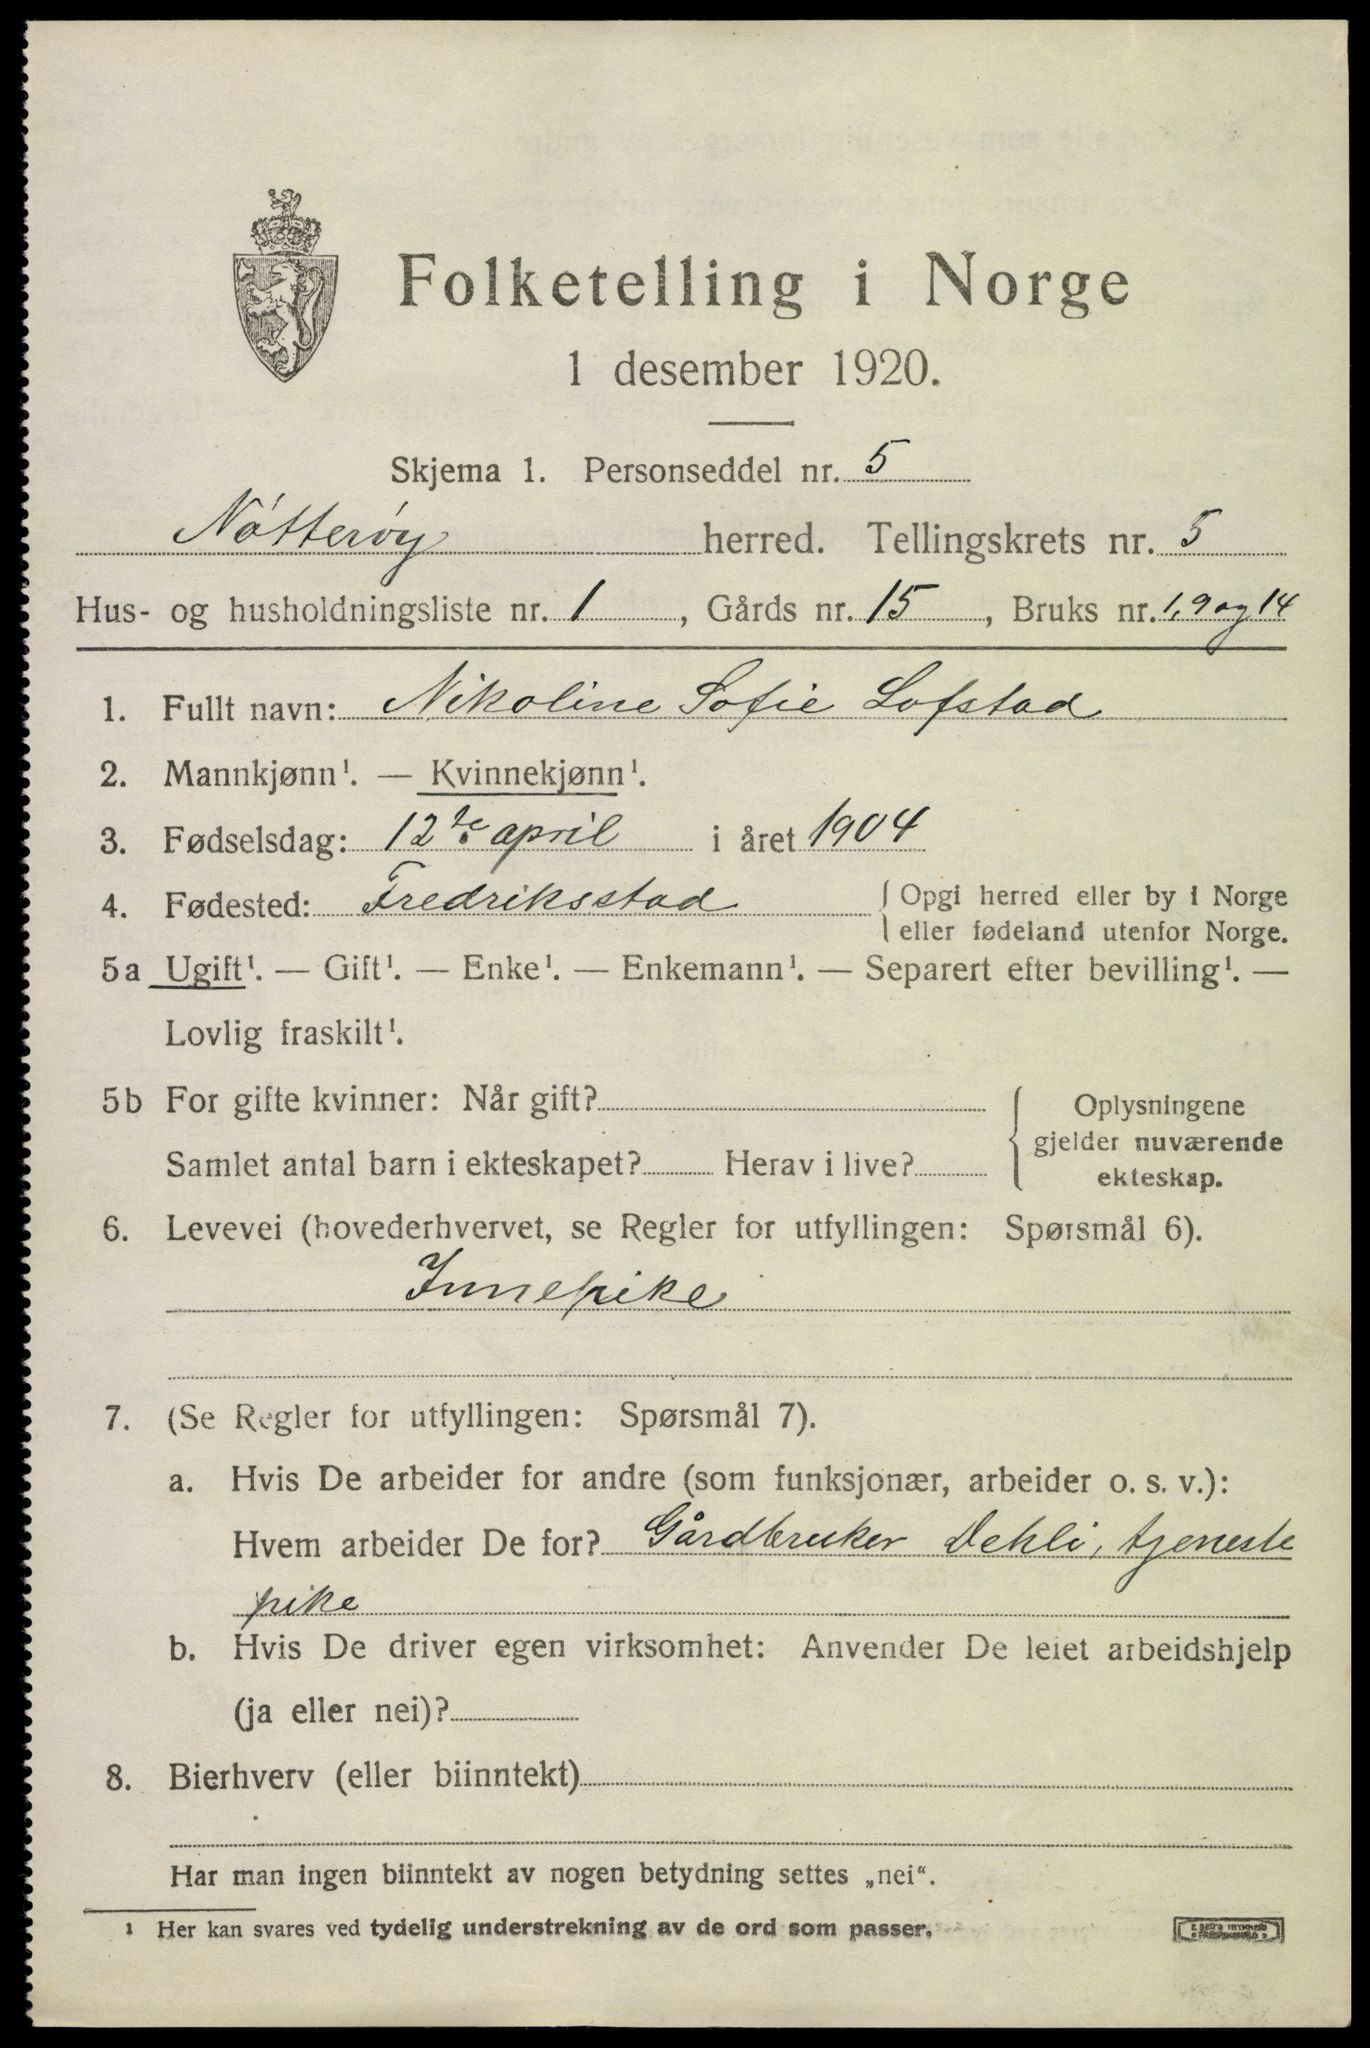 Folketelling i Norge
1 desember 1920.
Skjema 1. Personseddel nr. 5
Nøtterøy herred. Tellingskrets nr. 5
Hus- og husholdningsliste nr. 1, Gårds nr. 15, Bruks nr. 1, 9 og 14
1. Fullt navn: Nikoline Sofie Lofstad
2. Mannkjønn¹. — Kvinnekjønn¹.
3. Fødselsdag: 12te april i året 1904
4. Fødested: Fredriksstad { Opgi herred eller by i Norge
eller fødeland utenfor Norge.
5a Ugift¹. — Gift¹. — Enke¹. — Enkemann¹. — Separert efter bevilling¹. —
Lovlig fraskilt¹.
5b For gifte kvinner: Når gift?
Samlet antal barn i ekteskapet? Herav i live?
Oplysningene
gjelder nuværende
ekteskap.
6. Levevei (hovederhvervet, se Regler for utfyllingen: Spørsmål 6).
Innepike
7. (Se Regler for utfyllingen: Spørsmål 7).
a. Hvis De arbeider for andre (som funksjonær, arbeider o. s. v.):
Hvem arbeider De for? Gårdbruker Dehli, tjeneste
pike
b. Hvis De driver egen virksomhet: Anvender De leiet arbeidshjelp
(ja eller nei)?
8. Bierhverv (eller biinntekt)
Har man ingen biinntekt av nogen betydning settes „nei“.
¹ Her kan svares ved tydelig understrekning av de ord som passer.